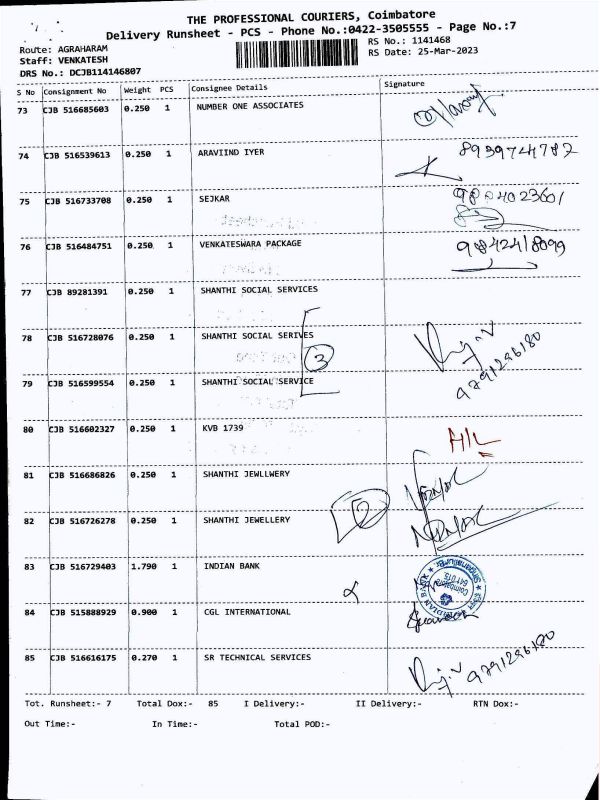 THE PROFESSIONAL COURIERS, Coimbatore
Delivery Runsheet - PCS - Phone No.:0422-3505555 - Page No.:7
Route: AGRAHARAM RS No.: 1141468
Staff: VENKATESH RS Date: 25-Mar-2023
DRS No.: DCJB114146807
S No Consignment No Weight PCS Consignee Details Signature
73 CJB 516685603 0.250 1 NUMBER ONE ASSOCIATES
74 CJB 516539613 0.250 1 ARAVIIND IYER 8939744782
75 CJB 516733708 0.250 1 SEJKAR
76 CJB 516484751 0.250 1 VENKATESWARA PACKAGE 9842418099
77 CJB 89281391 0.250 1 SHANTHI SOCIAL SERVICES
78 CJB 516728076 0.250 1 SHANTHI SOCIAL SERIVES
3 9791296180
79 CJB 516599554 0.250 1 SHANTHI SOCIAL SERVICE
80 CJB 516602327 0.250 1 KVB 1739 H/L
81 CJB 516686826 0.250 1 SHANTHI JEWLLWERY
2
82 CJB 516726278 0.250 1 SHANTHI JEWELLERY
83 CJB 516729403 1.790 1 INDIAN BANK
84 CJB 515888929 0.900 1 CGL INTERNATIONAL
85 CJB 516616175 0.270 1 SR TECHNICAL SERVICES 9791296180
Tot. Runsheet:- 7 Total Dox:- 85 I Delivery:- II Delivery:- RTN Dox:-
Out Time:- In Time:- Total POD:-